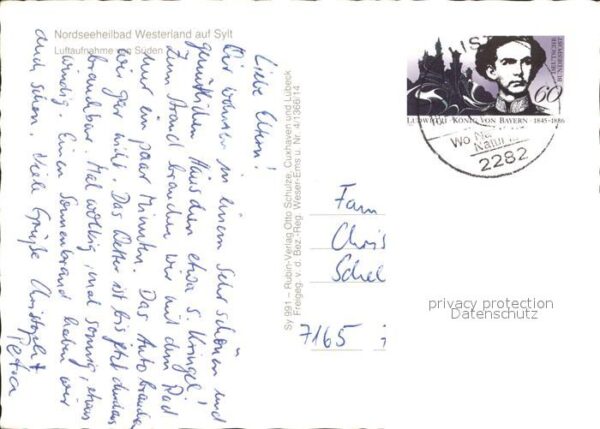 Nordseeheilbad Westerland auf Sylt
Luftaufnahme von Süden
Liebe Eltern!
Wir wohnen in einem sehr schönen und
gemütlichen Haus
Zum Strand brauchen wir mit dem Rad
nur ein paar Minuten. Das Auto brauchen
wir gar nicht. Das Wetter ist bis jetzt durchaus
brauchbar. Mal wolkig, mal sonnig, etwas
windig. Einen Sonnenbrand haben wir
auch schon. Viele Grüße Christoph +
Petra
Sy 991 – Rubin-Verlag Otto Schulze, Cuxhaven und Lübeck
Freigeg. v. d. Bez.-Reg. Weser-Ems u. Nr. 4/1366/14
DEUTSCHE
BUNDESPOST
60
LUDWIG II · KÖNIG VON BAYERN 1845-1886
LIST
Wo Na
Natur
2282
Fam
Chris
Schel
7165
privacy protection
Datenschutz